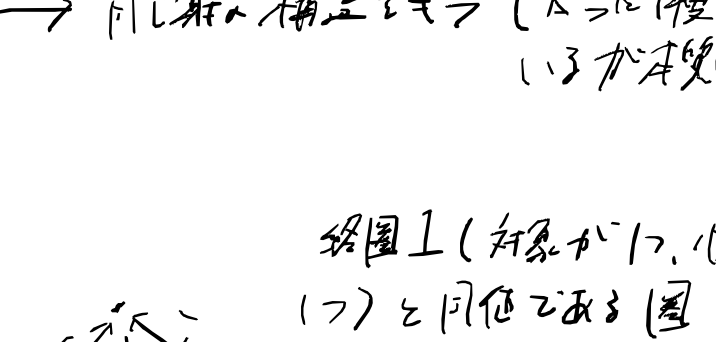 → 同じ射の構造をもつ(
いるが本質
終圏1(対象が1つ、
1つ)と同値である圏